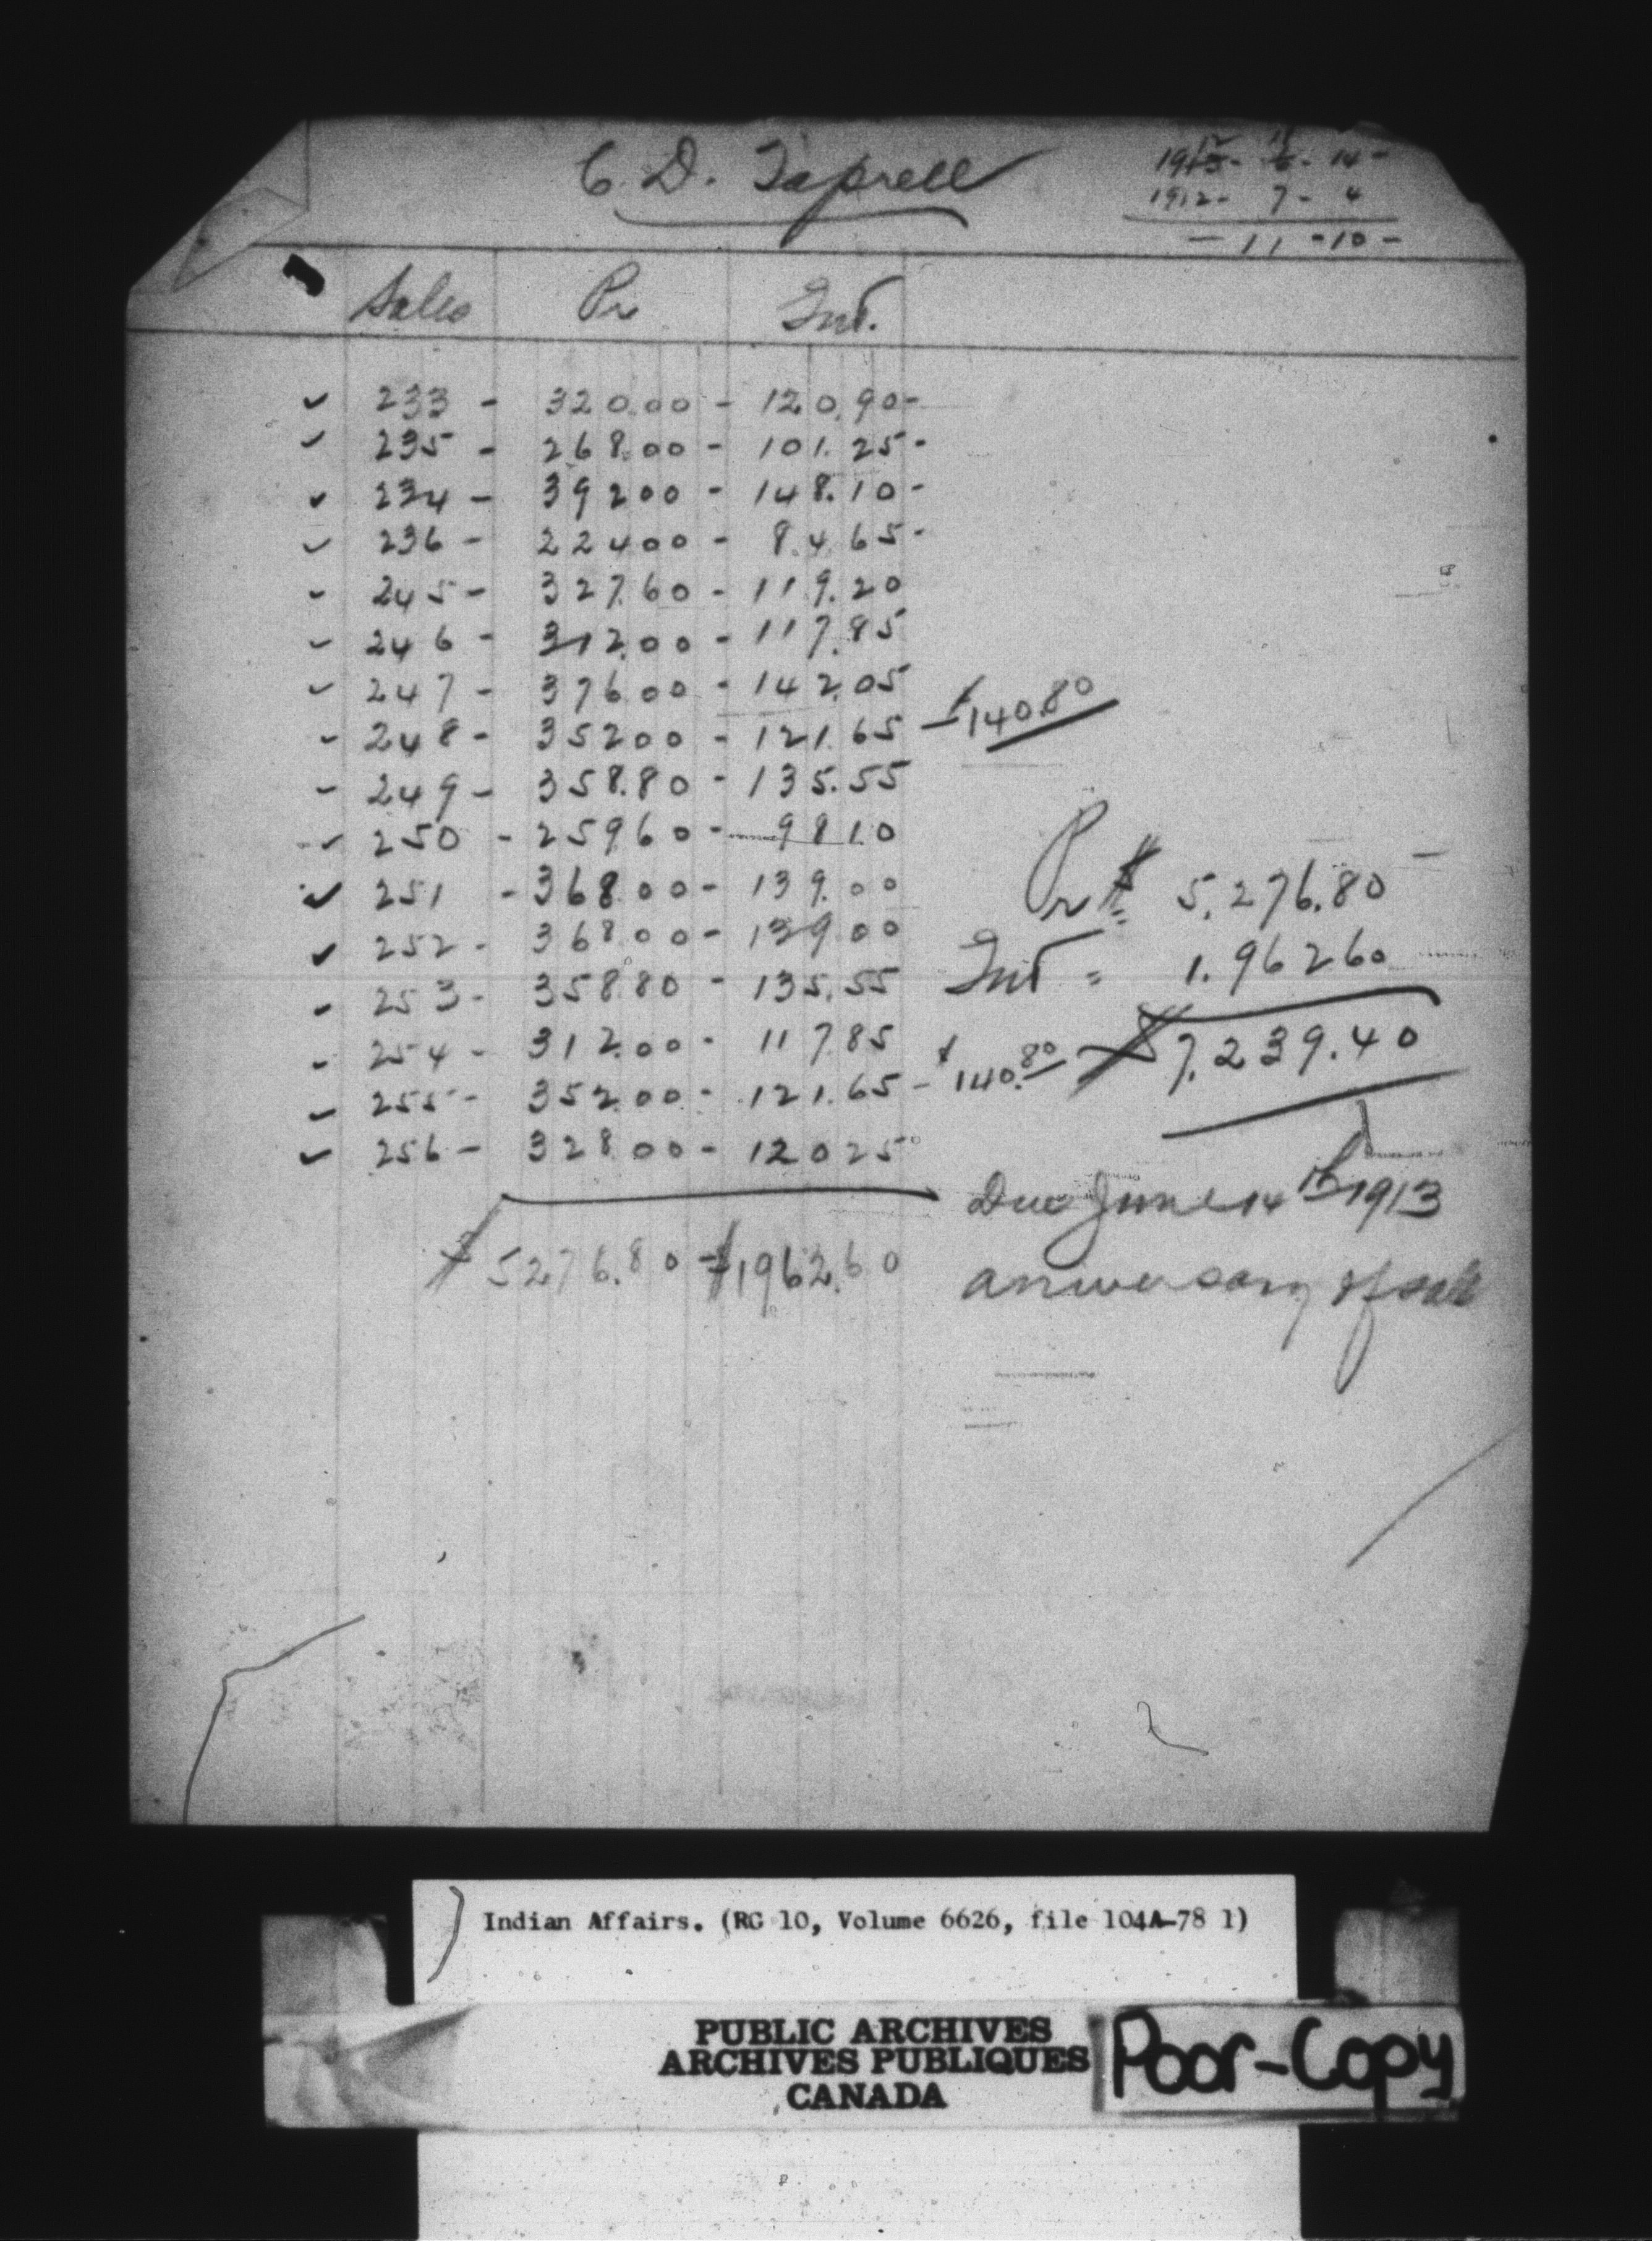 C. D. Taprell
12 11
1913 - 6 - 14 -
1912 - 7 - 4
- 11 - 10 -
Sales Pr Int.
✓ 233 - 320.00 - 120.90 -
✓ 235 - 268.00 - 101.25 -
✓ 234 - 39200 - 148.10 -
✓ 236 - 22400 - 84.65 -
✓ 245 - 327.60 - 119.20
✓ 246 - 312.00 - 117.85
✓ 247 - 376.00 - 142.05
✓ 248 - 35200 - 121.65 - $140.80
✓ 249 - 358.80 - 135.55
✓ 250 - 259.60 - 98.10
✓ 251 - 368.00 - 139.00
✓ 252 - 368.00 - 139.00
✓ 253 - 358.80 - 135.55
✓ 254 - 312.00 - 117.85
✓ 255 - 352.00 - 121.65 - $140.80
✓ 256 - 328.00 - 120.25
$5276.80 - $1962.60
Pr $ = 5,276.80
Int = 1.96260
$7,239.40
Due June 14th 1913
aniversary of sale
Indian Affairs. (RG 10, Volume 6626, file 104A-78 1)
PUBLIC ARCHIVES
ARCHIVES PUBLIQUES
CANADA
Poor-Copy